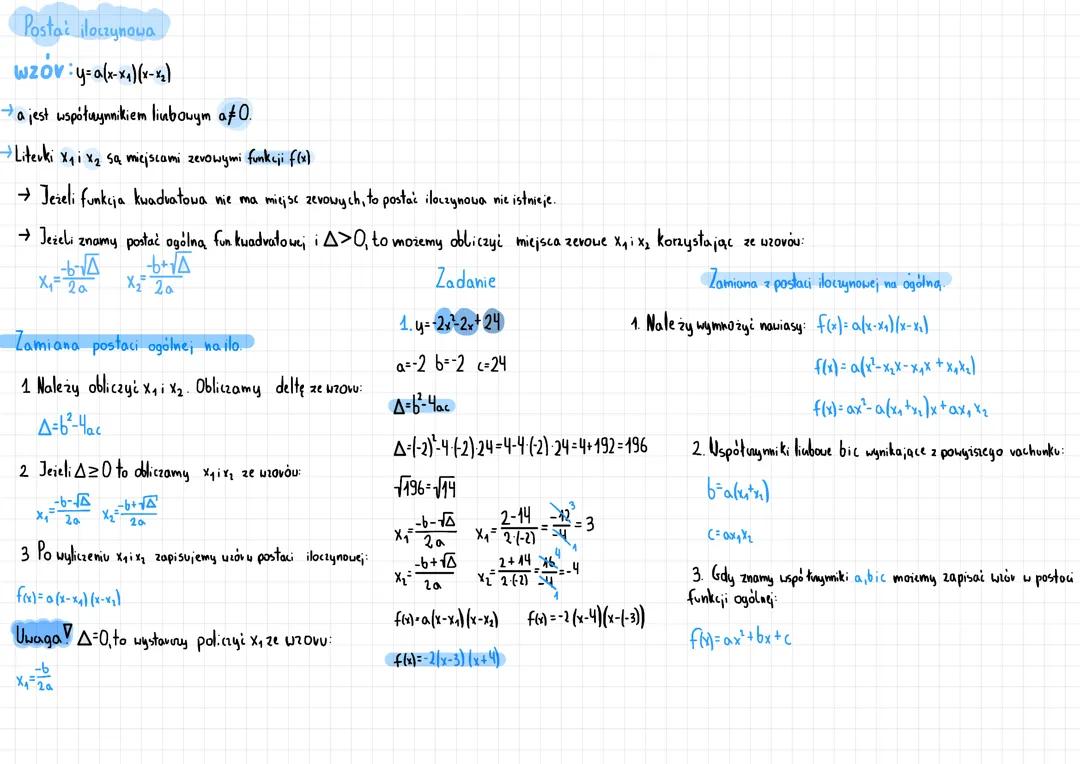 Postać iloczynowa
wzór: y=a(x-x₁)(x-x₂)
→ a jest współczynnikiem liczbowym a≠0.
→ Literki x₁ i x₂ są miejscami zerowymi funkcji f(x)
→ Jeżeli funkcja kwadratowa nie ma miejsc zerowych, to postać iloczynowa nie istnieje.
→ Jeżeli znamy postać ogólną fun. kwadratowej i Δ>0, to możemy obliczyć miejsca zerowe x₁ i x₂ korzystając ze wzorów:
x₁=(-b-√Δ)/2a x₂=(-b+√Δ)/2a
Zamiana postaci ogólnej na ilo.
1 Należy obliczyć x₁ i x₂. Obliczamy deltę ze wzoru:
Δ=b²-4ac
2 Jeżeli Δ≥0 to obliczamy x₁ i x₂ ze wzorów:
x₁=(-b-√Δ)/2a x₂=(-b+√Δ)/2a
3 Po wyliczeniu x₁ i x₂ zapisujemy wzór w postaci iloczynowej:
f(x)=a(x-x₁)(x-x₂)
Uwaga! Δ=0, to wystarczy policzyć x₁ ze wzoru:
x₁=-b/2a
Zadanie
1. y=-2x²-2x+24
a=-2 b=-2 c=24
Δ=b²-4ac
Δ=(-2)²-4·(-2)·24=4-4·(-2)·24=4+192=196
√196=√14
x₁=(-b-√Δ)/2a x₁=(2-14)/(2·(-2))=-12/-4=3
x₂=(-b+√Δ)/2a x₂=(2+14)/(2·(-2))=16/-4=-4
f(x)=a(x-x₁)(x-x₂) f(x)=-2(x-4)(x-(-3))
f(x)=-2(x-3)(x+4)
Zamiana z postaci iloczynowej na ogólną.
1. Należy wymnożyć nawiasy: f(x)=a(x-x₁)(x-x₂)
f(x)=a(x²-x₂x-x₁x+x₁x₂)
f(x)=ax²-a(x₁+x₂)x+ax₁x₂
2. Współczynniki liczbowe b i c wynikające z powyższego rachunku:
b=a(x₁+x₂)
c=ax₁x₂
3. Gdy znamy współczynniki a,b i c możemy zapisać wzór w postaci
funkcji ogólnej:
f(x)=ax²+bx+c